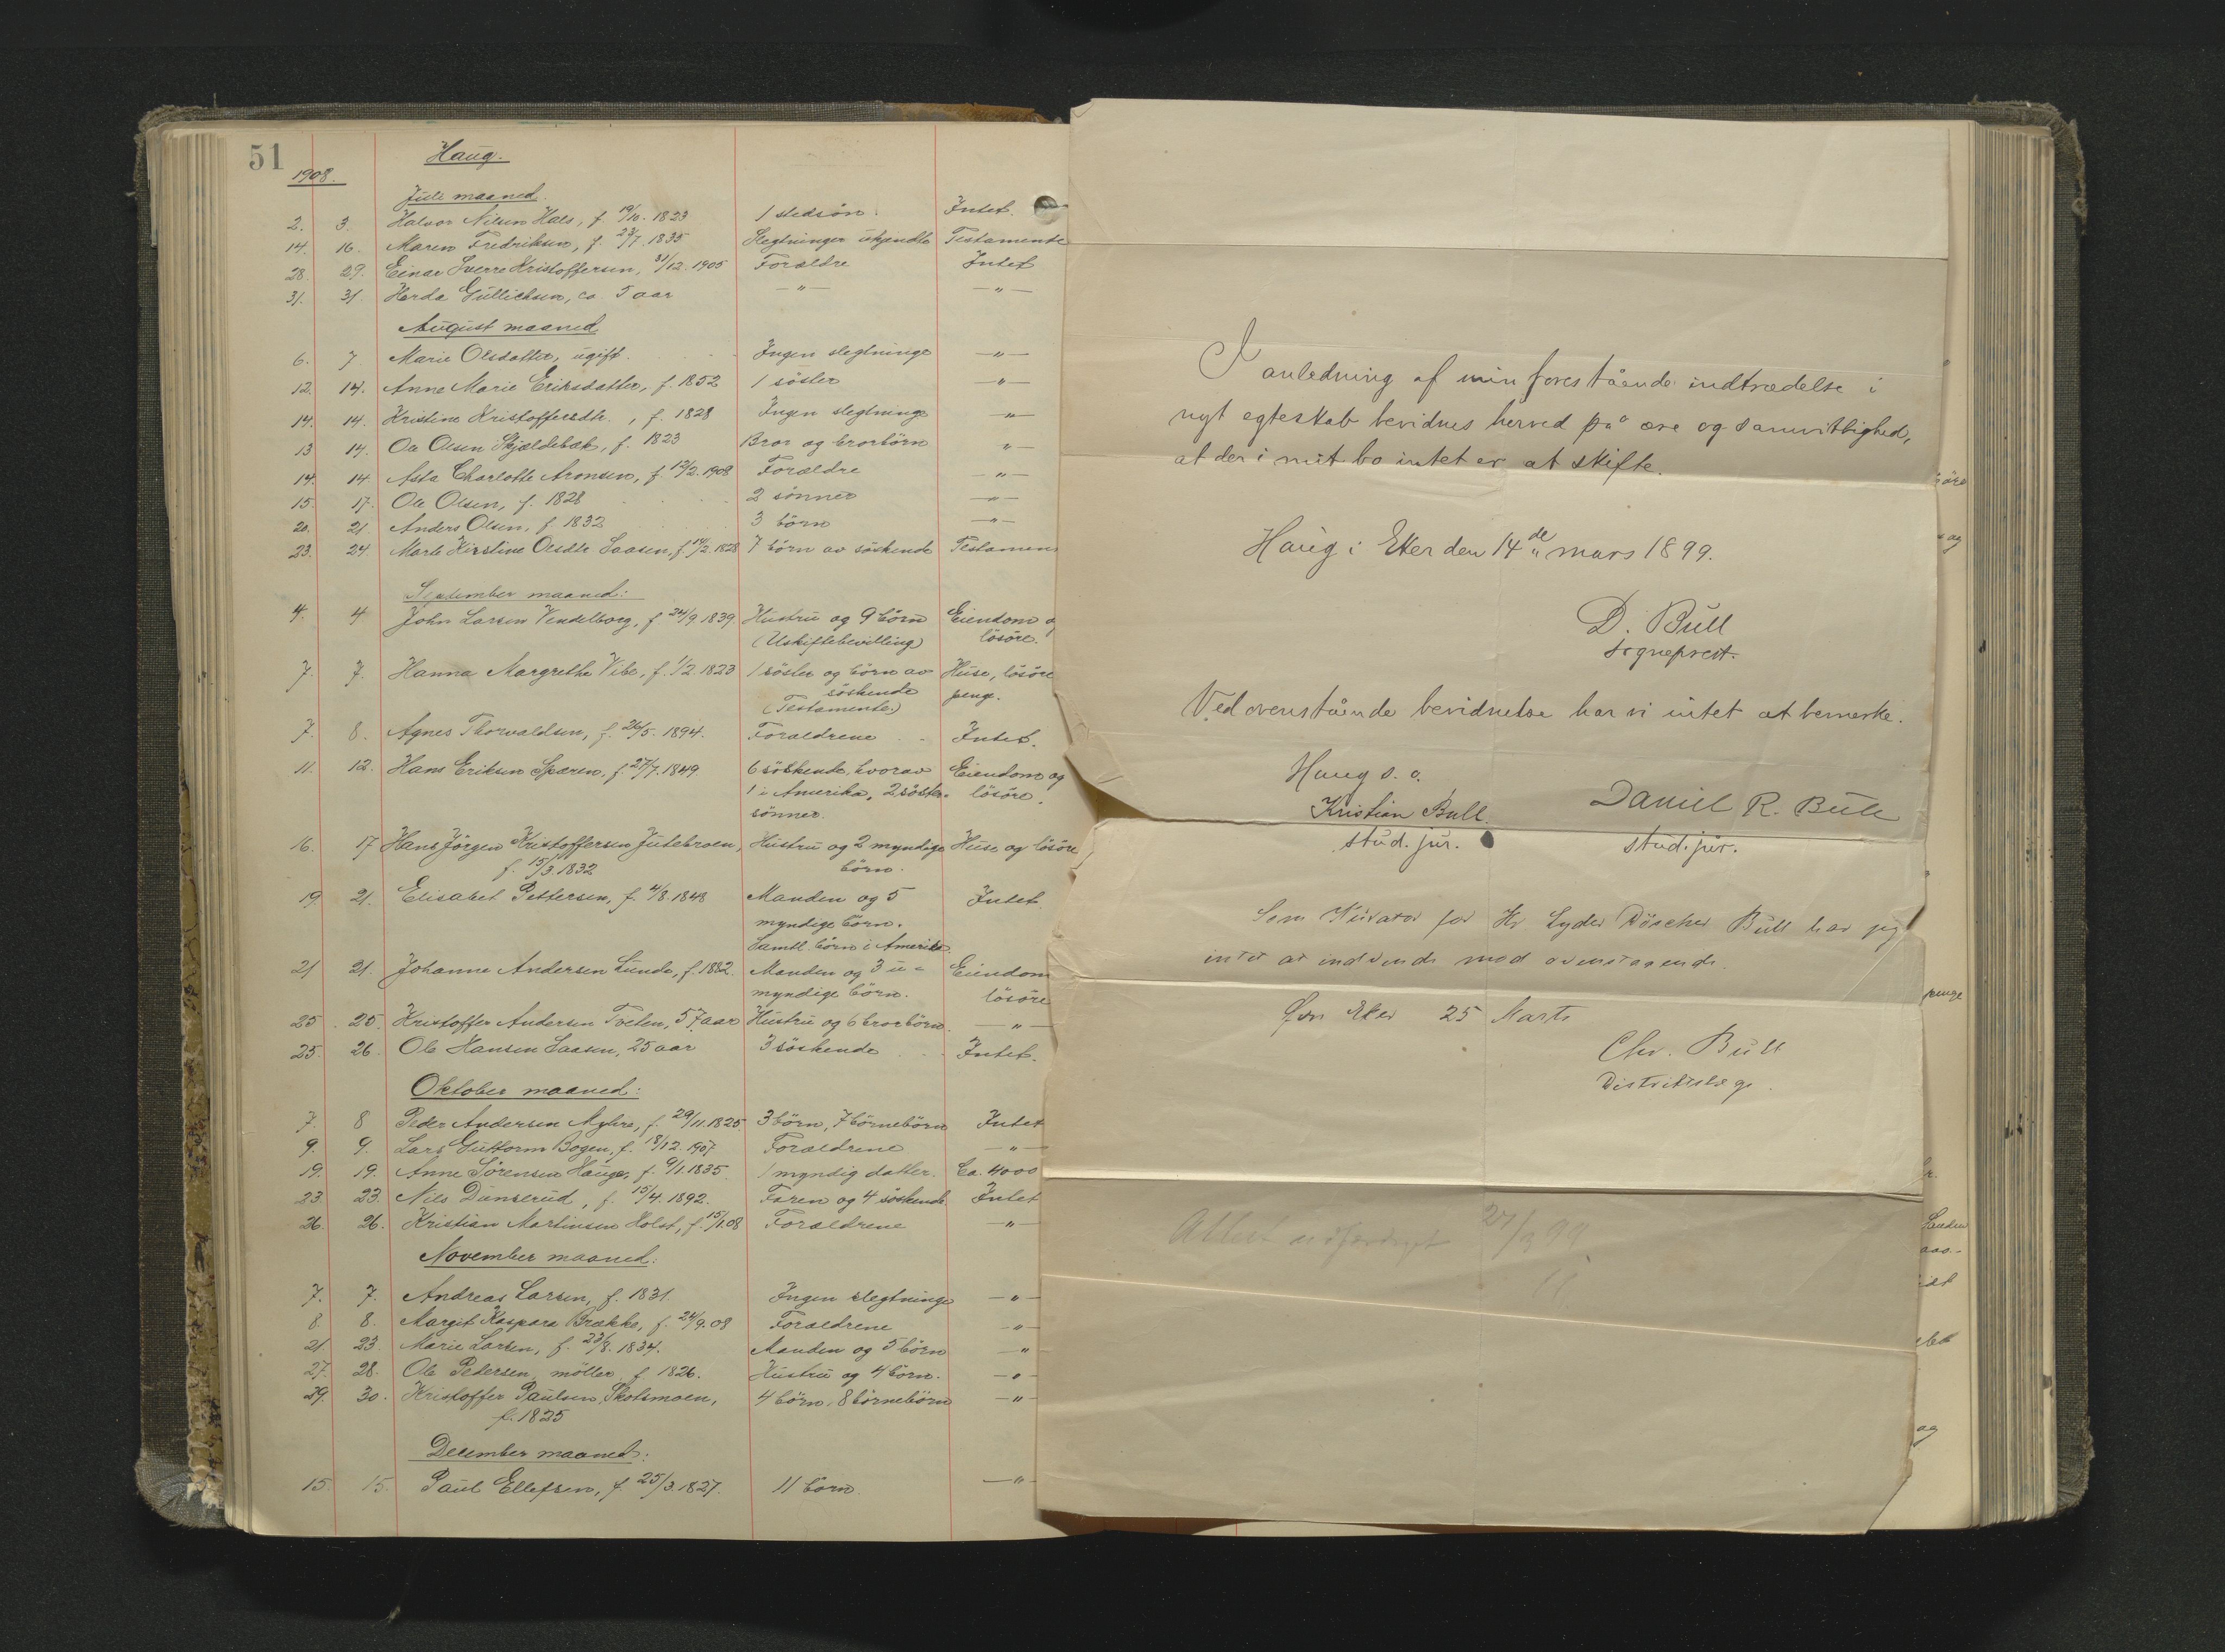 51
Haug.
1908.
Juli maaned.
2. 3. Halvor Nilsen Hals, f. 19/10. 1823 1 stedsön. Intet.
14. 16. Maren Fredriksen, f. 23/7. 1835 Slegtninger ukjendte Testamente
28. 29. Einar Sverre Kristoffersen, 31/12. 1905 Forældre Intet
31. 31. Herda Gullichsen, ca. 5 aar —"— —"—
August maaned
6. 7. Marie Olsdatter, ugift. Ingen slegtninge —"—
12. 14. Anne Marie Eriksdatter, f. 1852 1 söster —"—
14. 14. Kristine Kristoffersdtr., f. 1828 Ingen slegtninge —"—
13 14. Ole Olsen Skjældebæk, f. 1823 Bror og brorbörn "—
14. 14. Asta Charlotte Aronsen, f. 12/2. 1908 Forældre —"—
15. 17. Ole Olsen, f. 1828 2 sönner —"—
20. 21. Anders Olsen, f. 1832 3 börn —"—
23. 24. Marte Kirstine Olsdtr Saasen, f. 14/2. 1828 7 börn av söskende Testamen
September maaned:
4. 4 John Larsen Vendelborg, f. 24/9 1839 Hustru og 9 börn Eiendom o
(Uskiftebevilling) lösöre.
7. 7. Hanna Margrethe Vibe, f. 1/2. 1823 1 söster og börn av Huse, lösöre
söskende penge.
(Testamente.)
7. 8. Agnes Thorvaldsen, f. 26/5. 1894. Forældrene Intet.
11. 12. Hans Eriksen Speren, f. 27/7. 1849. 6 söskende, hvorav Eiendom og
1 i Amerika, 2 söster- lösöre.
sönner.
16. 17 Hans Jörgen Kristoffersen Jutebroen, Hustru og 2 myndige Huse og lösöre
f. 15/3. 1832 börn.
19. 21. Elisabet Pettersen, f. 4/8. 1848 Manden og 5 Intet
myndige börn.
Samtl. börn i Amerika.
21 21. Johanne Andersen Lunde, f. 1882. Manden og 3 u- Eiendom
myndige börn. lösöre
25. 25. Kristoffer Andersen Tveten, 57 aar Hustru og 6 brorbörn. —"—
25. 26. Ole Hansen Saasen, 25 aar 3 söskende Intet.
Oktober maaned:
7. 8 Peder Andersen Myhre, f. 29/11. 1825. 3 börn, 7 börnebörn Intet
9. 9. Lars Guttorm Bogen, f. 18/12. 1907 Forældrene —"—
19. 19. Anne Sörensen Hauge, f. 9/1. 1835 1 myndig datter. Ca. 4000
23 23. Nils Dunserud, f. 15/4. 1892. Faren og 4 söskende Intet
26. 26. Kristian Martinsen Holst, f. 15/1. 08 Forældrene —"—
November maaned:
7. 7. Andreas Larsen, f. 1831. Ingen slegtninge —"—
8. 8. Margit Kaspara Brække, f. 24/9. 08 Forældrene —"—
21 23. Marie Larsen, f. 23/8. 1834. Manden og 5 börn —"
27. 28. Ole Pedersen, möller f. 1826. Hustru og 4 börn. —"—
29. 30. Kristoffer Paulsen Skotsmoen, 4 börn, 8 börnebörn —"—
f. 1825
December maaned:
15. 15. Paul Ellefsen, f. 25/3. 1827. 11 börn. —"—
I anledning af min forestående indtrædelse i
nyt egteskab bevidnes herved på ære og samvittighed,
at der i mit bo intet er at skifte.
Haug i Eker den 14de mars 1899.
D. Bull
sogneprest.
Ved ovenstående bevidnelse har vi intet at bemerke.
Haug d. o.
Kristian Bull. Daniel R. Bull
stud. jur. stud. jur.
Som Kurator for Hr Lyder Röscher Bull har jeg
intet at indvende mod ovenstaaende.
Övr Eker 25 Marts
Chr. Bull
Distriktslæge.
Attest udfærdiget 27/3 99
öre
og
penge
r.
aas-
og